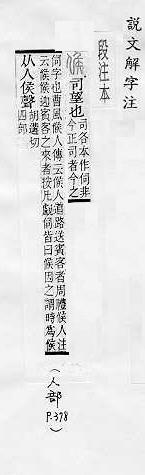 說文解字注
段注本
𠊱 司望也 司各本作伺非
今正司者今之
伺字也曹風候人傳云候人道路送賓客者周禮候人注
云候候迎賓客之來者按凡覻伺皆曰候因之謂時為候
从人矦聲 胡遘切
四部
(人部 P.378)